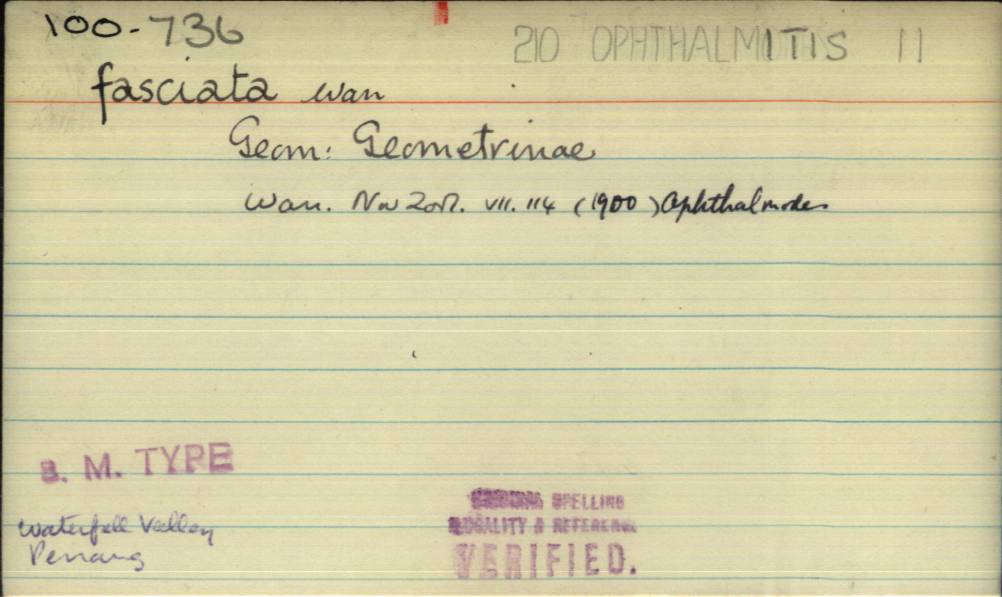 100-736
210 OPHTHALMITIS 11
fasciata Warr
Geom: Geometrinae
Warr. Nov Zool. VII. 114 (1900) Ophthalmodes
B. M. TYPE
Waterfall Valley
Penang
SPELLING
LOCALITY & REFERENCE
VERIFIED.